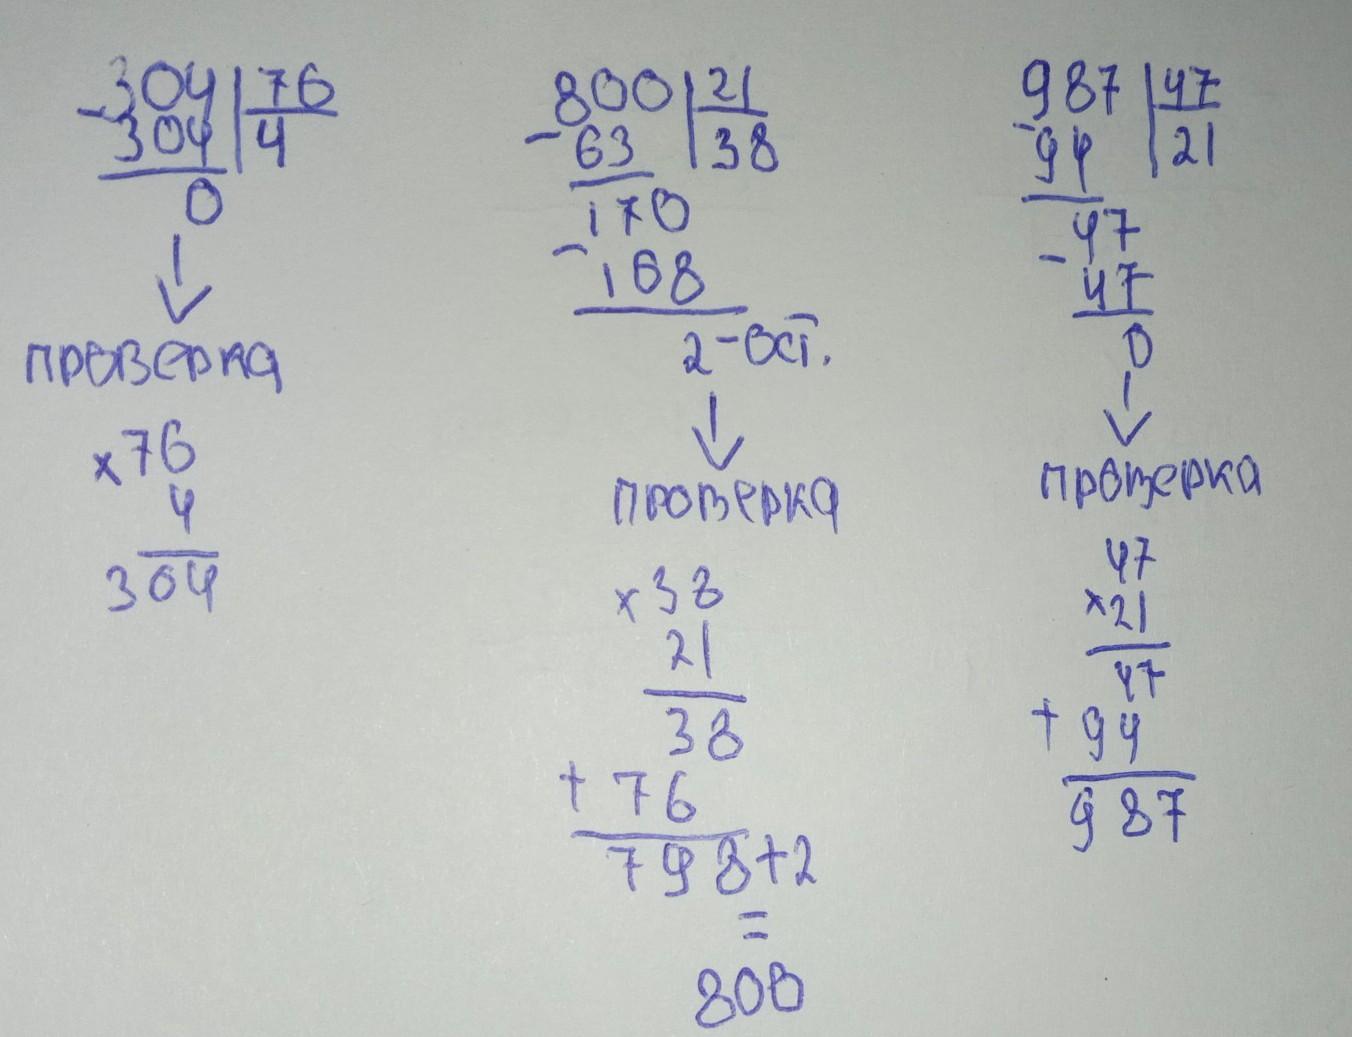 304 | 76
- 304 | 4
0
проверка
× 76
4
304
800 | 21
- 63 | 38
170
- 168
2 - ост.
проверка
× 38
21
38
+ 76
798 + 2
=
800
987 | 47
- 94 | 21
47
- 47
0
проверка
47
× 21
47
+ 94
987